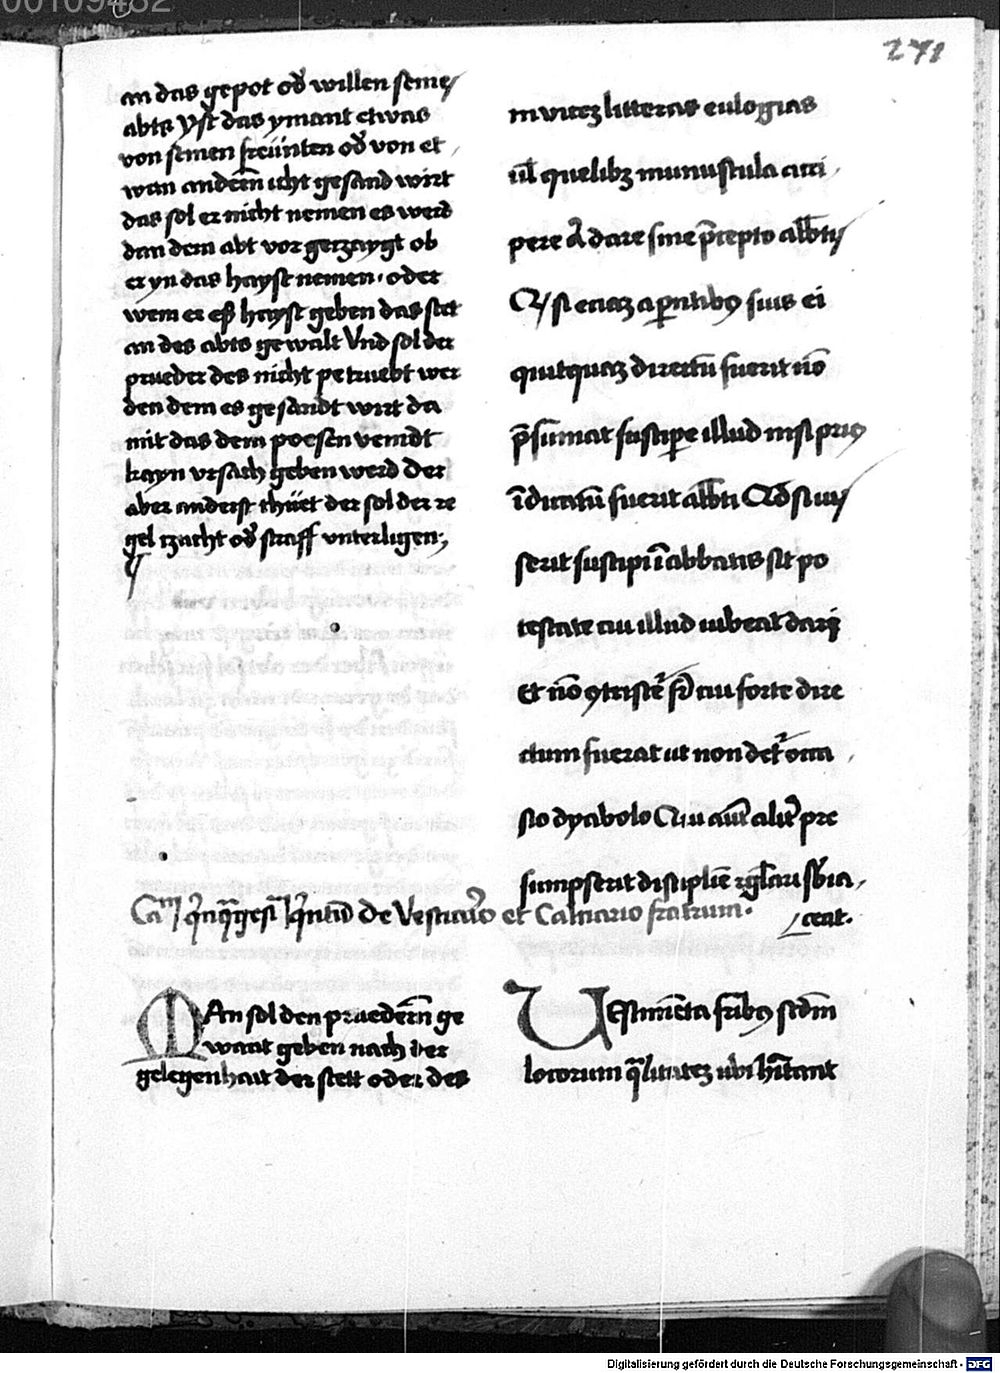 00109482
271
an das gepot od̉ willen seine
abts yst das ymant etwas
von seinen freünten od̉ von et
wan anderm̄ icht gesand wirt
das sol er nicht nemen es werd
dan dem abt vor gerzaygt ob
er yn das hayst nemen · oder
wem er eß hayst geben das stet
an des abts gewalt Vnd sol der
prueder des nicht petruebt wer
den dem es gesandt wirt da
mit das dem poesen veindt
kayn vrsach geben werd Der
aber anderst thüet der sol der re
gel tzucht od̉ straff vnterligen
inuicez litteras eulogias
ul̄ quelibz munuscula acci
pere a̅ dare sine p̄cepto abb̄tis
Q si eciaz a parentibꝯ suis ei
quicquaz directū fuerit nō
p̄sumat suscipe illud nisi priꝯ
īdicatū fuerit abb̄ti Qd̄ si ius
serit suscipi ī abbatis sit po
testate cui illud iubeat dari
Et nō ꝯtristet̉ fr̄ cui forte dire
ctum fuerat ut non det̉ occa
sio dyabolo Qui aut̄ alit̉ pre
sumpserit discipline r̄gl̄ari s̄bia
ceat.
Cam̄ qͥnqͣgesiͫ qͥntū De Vestiaͬo et Calciario fratrum.
MAn sol den pruedern̄ ge
want geben nach der
gelegenhait der stett oder des
VEstimēta fr̄ibꝯ scd̄m
locorum qͣlitatez ubi hītant
Digitalisierung gefördert durch die Deutsche Forschungsgemeinschaft - DFG